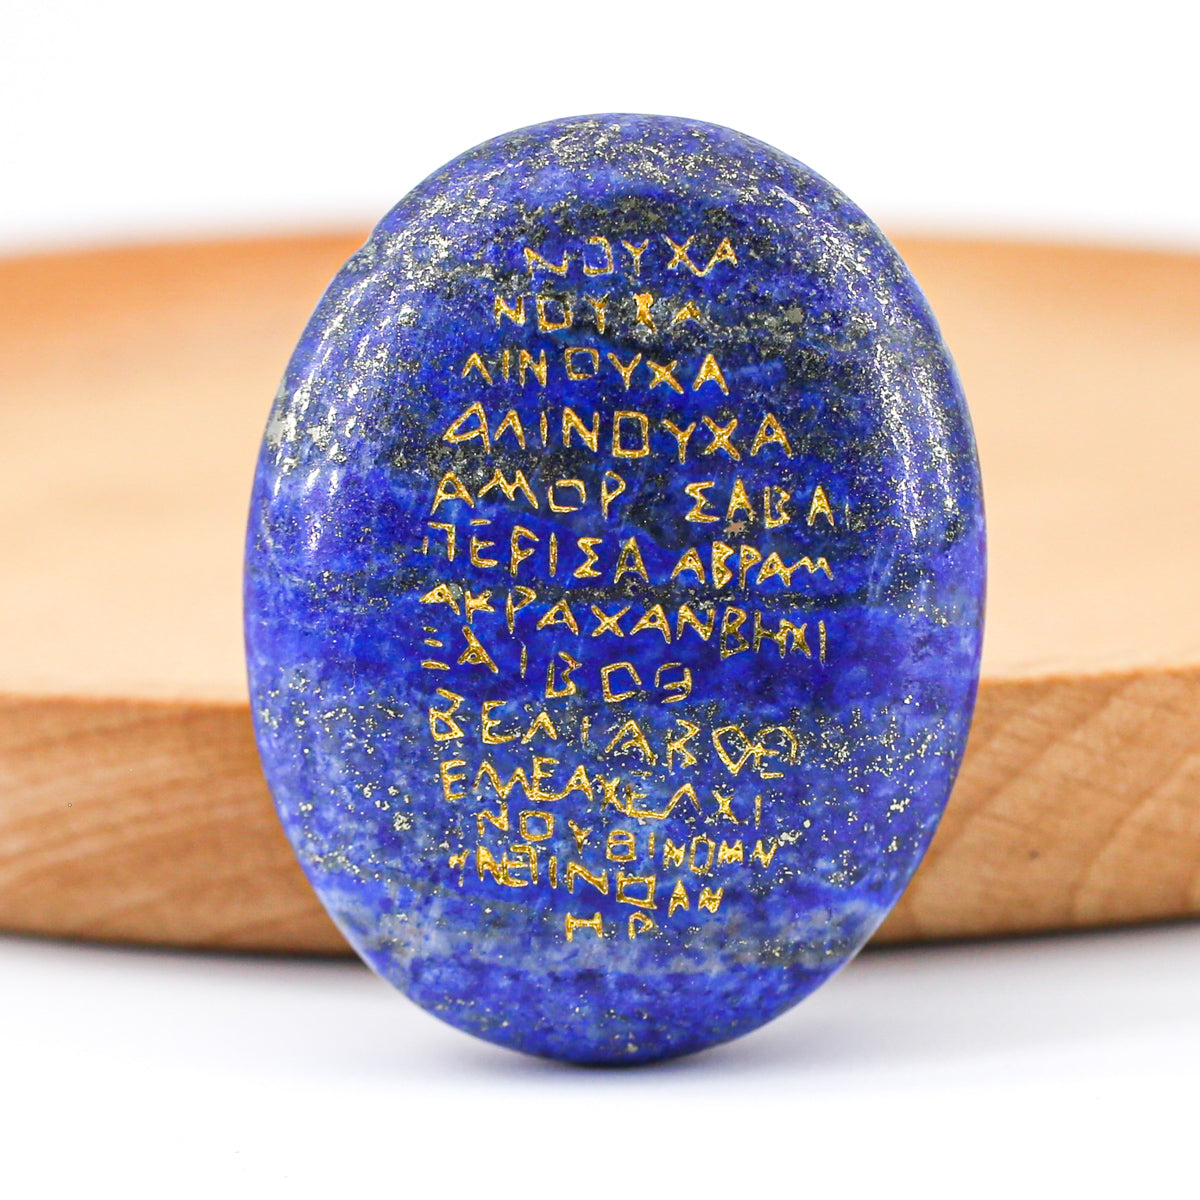 ΝΟΥΧΑ
ΝΟΥΧΑ
ΛΙΝΟΥΧΑ
ΑΛΙΝΟΥΧΑ
ΑΜΟΡ ΣΑΒΑΙ
ΠΕΡΙΣΑ ΑΒΡΑΜ
ΑΚΡΑΧΑΝΒΗΧΙ
ΞΑΙΒΟΘ
ΒΕΛΙΑΒΟΕ
ΕΜΕΑΧΕΛΧΙ
ΝΟΥΘΙΝΟΜΝ
ΗΡ